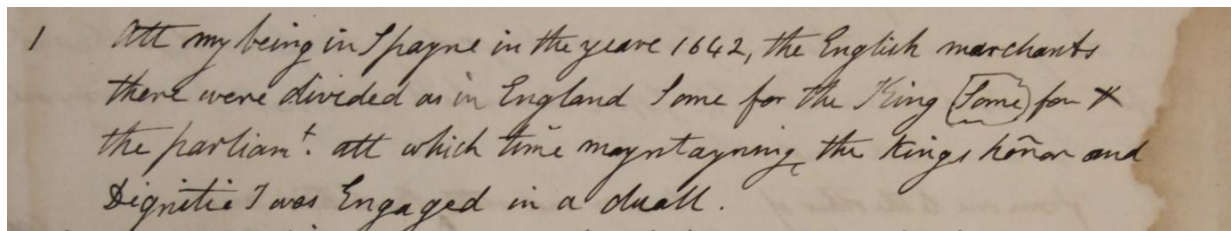 1 Att my being in Spayne in the yeare 1642, the English marchants
there were divided as in England Some for the King (Some) for X
the parliamt. att which time mayntayning the Kings honor and
Dignitie I was Engaged in a duall.